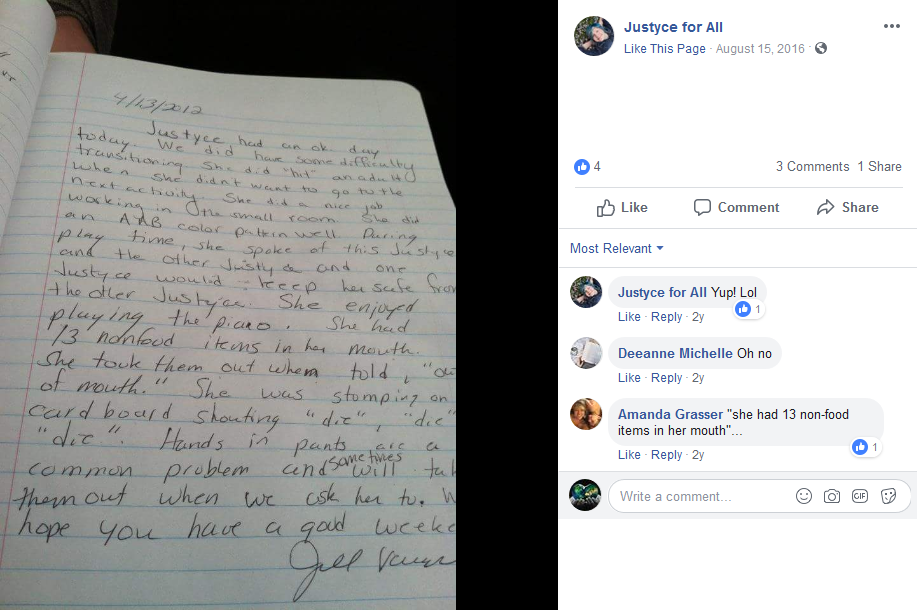 4/13/2012
Justyce had an ok day
today. We did have some difficulty
transitioning. She did "hit" an adult
when she didn't want to go to the
next activity. She did a nice job
working in the small room. She did
an AAB color pattern well. During
play time, she spoke of this Justyce
and the other Justyce and one
Justyce would keep her safe from
the other Justyce. She enjoyed
playing the piano. She had
13 nonfood items in her mouth.
She took them out when told, "out
of mouth." She was stomping on
cardboard shouting "die", "die"
"die". Hands in pants are a
common problem and sometimes will tak
them out when we ask her to. W
hope you have a good weeke
Jill
Justyce for All
Like This Page · August 15, 2016 ·
4
3 Comments 1 Share
Like Comment Share
Most Relevant
Justyce for All Yup! Lol
1
Like · Reply · 2y
Deeanne Michelle Oh no
Like · Reply · 2y
Amanda Grasser "she had 13 non-food
items in her mouth"...
1
Like · Reply · 2y
Write a comment...
GIF